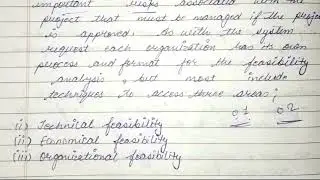 important risks associated with the
project that must be managed if the project
is approved. As with the system
request each organization has its own
process and format for the feasibility
analysis, but most include
techniques to access three areas;
01 02
(i) Technical feasibility
(ii) Economical feasibility
(iii) Organizational feasibility